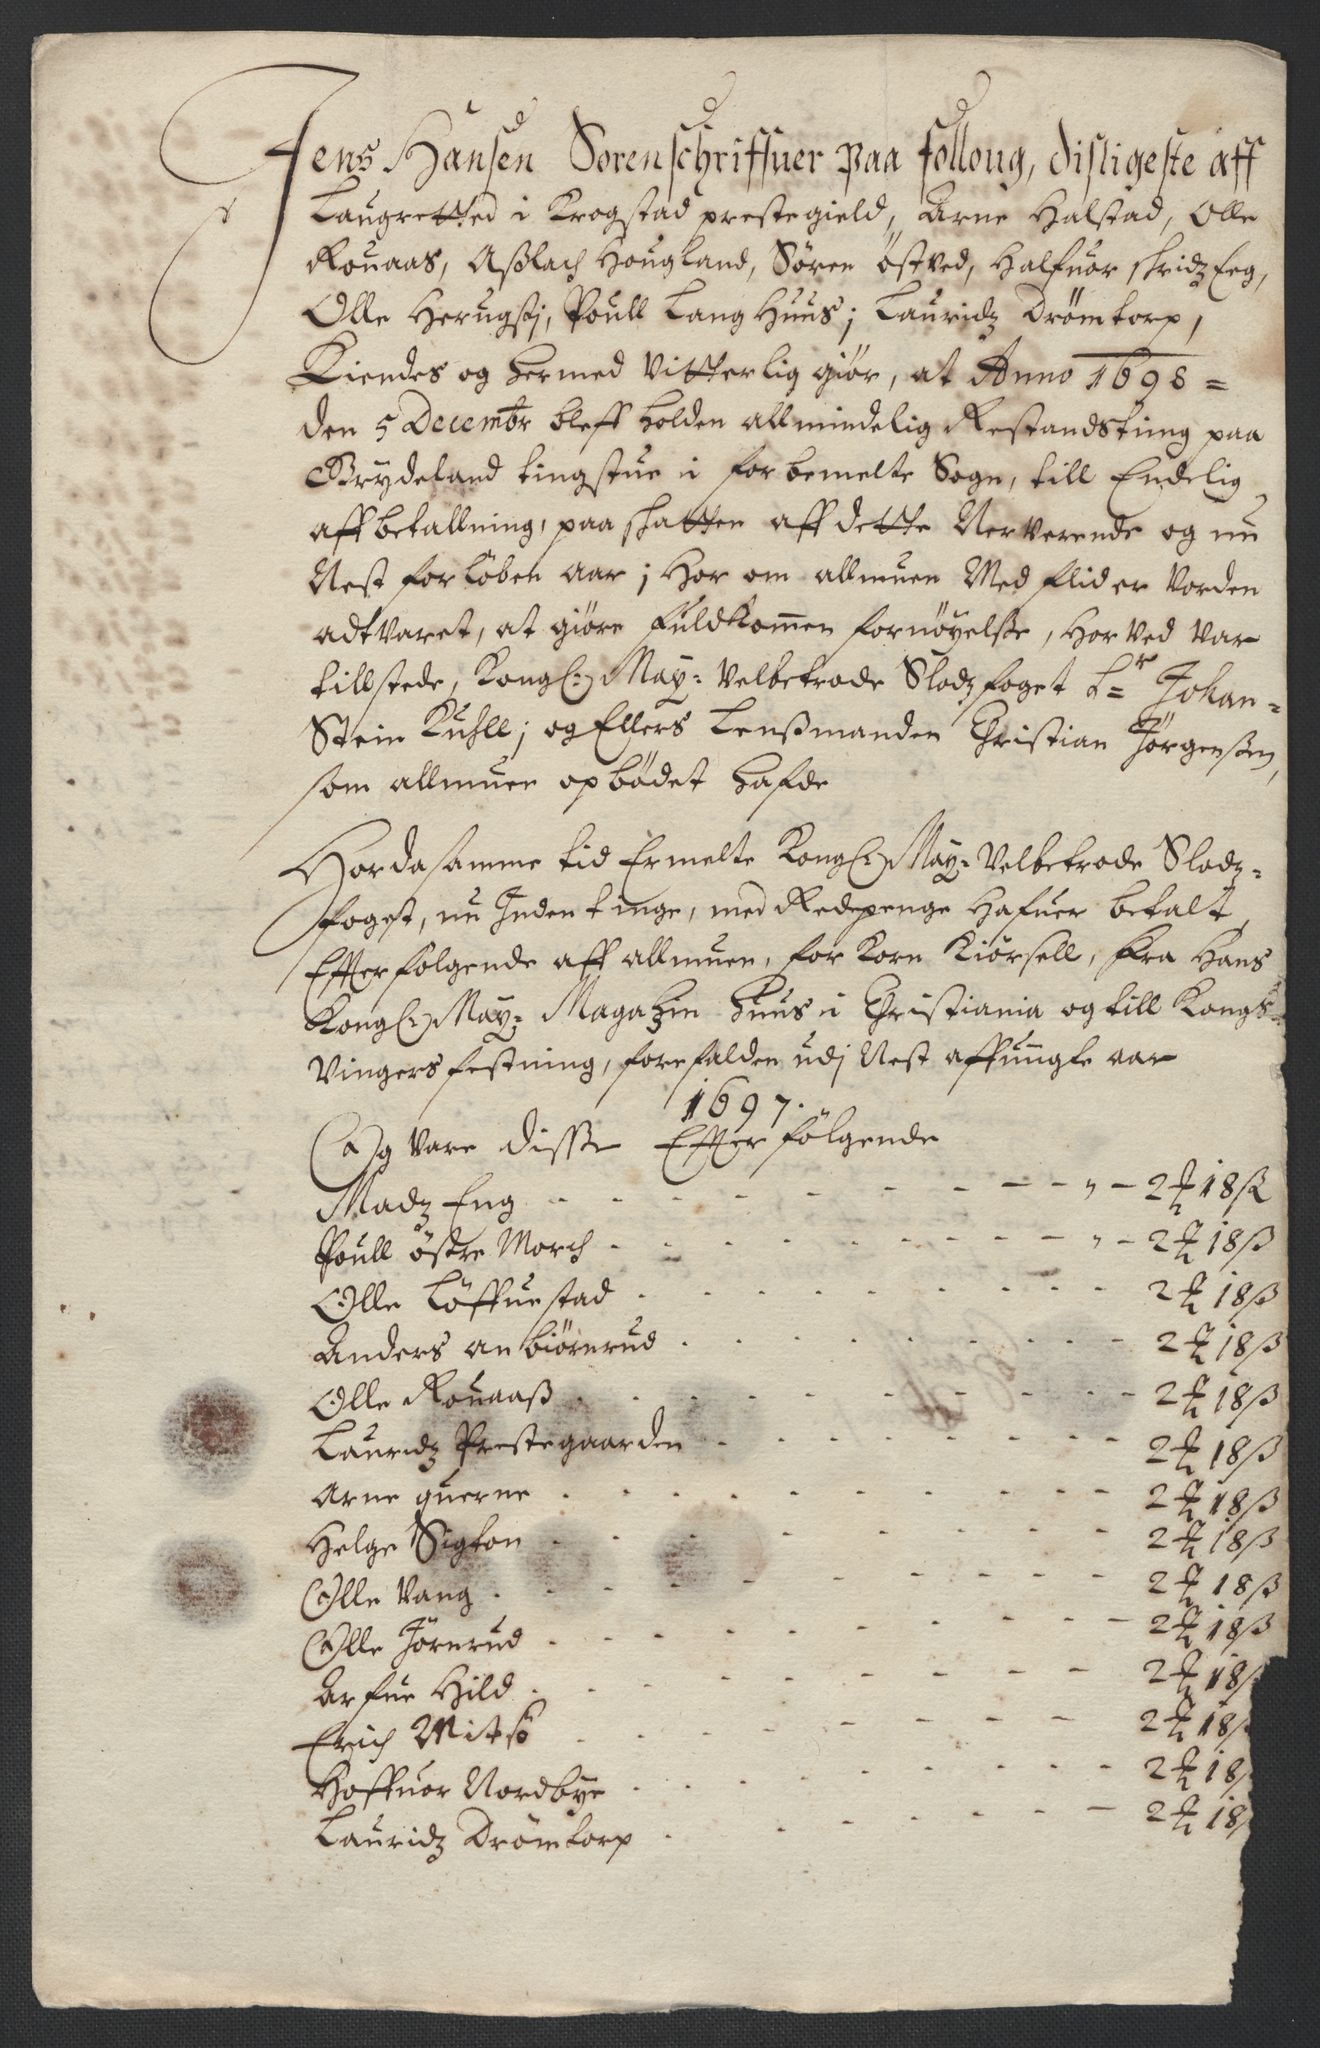 Jens Hansen Sorenschriffuer paa folloug, disligeste aff
Laugretted i Krogstad prestegield, Arne Halstad, Olle
Rouaas, Aslach Hougland, Sören östved, Halfuor skridz Eeg,
Olle Herugstj, Poull Lang Huus; Lauridz Drömtorp,
Kiendes og hermed vitterlig giör, at Anno 1698 =
den 5 Decembr bleff holden allmindelig Restandsting paa
Grydeland tingstue i forbemelte Sogn, till Endelig
aff betallning, paa skatten aff dette Nerverende og nu
Nest forlöben aar; Hor om allmuen Med flid er vorden
adtvaret, at giöre fuldkommen fornöyelsse, Hor ved var
tillstede, Kongl: May: velbetrode Slodzfoget Sr Johan =
Stein Kuhll; og Ellers Lenssmanden Christian Jörgenssen,
som allmuen opbödet hafde
Hor da samme tid Ermelte Kongl: May: velbetrode Slodz =
foget, nu Inden tinge, med Redepenge Hafuer betalt,
Effterfolgende aff allmuen, for Korn Kiörsell, fra Hans
Kongl: May: Magatzin huus i Christiania og till Kongs =
vingers festning, forefalden udj Nest affvigte aar
1697.
Og vare disse Effterfölgende
Madz Eng - - - - - - - - - 2 ₰ 18 ß
Poull östre Morch - - - - - - - - 2 ₰ 18 ß
Olle Löffuestad - - - - - - - - 2 ₰ 18 ß
Anders anbiörnrud - - - - - - - - 2 ₰ 18 ß
Olle Rouaass - - - - - - - - 2 ₰ 18 ß
Lauridz Prestegaarden - - - - - - - 2 ₰ 18 ß
Arne querne - - - - - - - - 2 ₰ 18 ß
Helge Sigton - - - - - - - - 2 ₰ 18 ß
Olle Vang - - - - - - - - 2 ₰ 18 ß
Olle Jörnrud - - - - - - - - 2 ₰ 18 ß
Arfue Hild - - - - - - - - 2 ₰ 18 ß
Erich Mitsö - - - - - - - 2 ₰ 18 ß
Hoffuor Nordbye - - - - - - - 2 ₰ 18
Lauridz Drömtorp - - - - - - - 2 ₰ 18